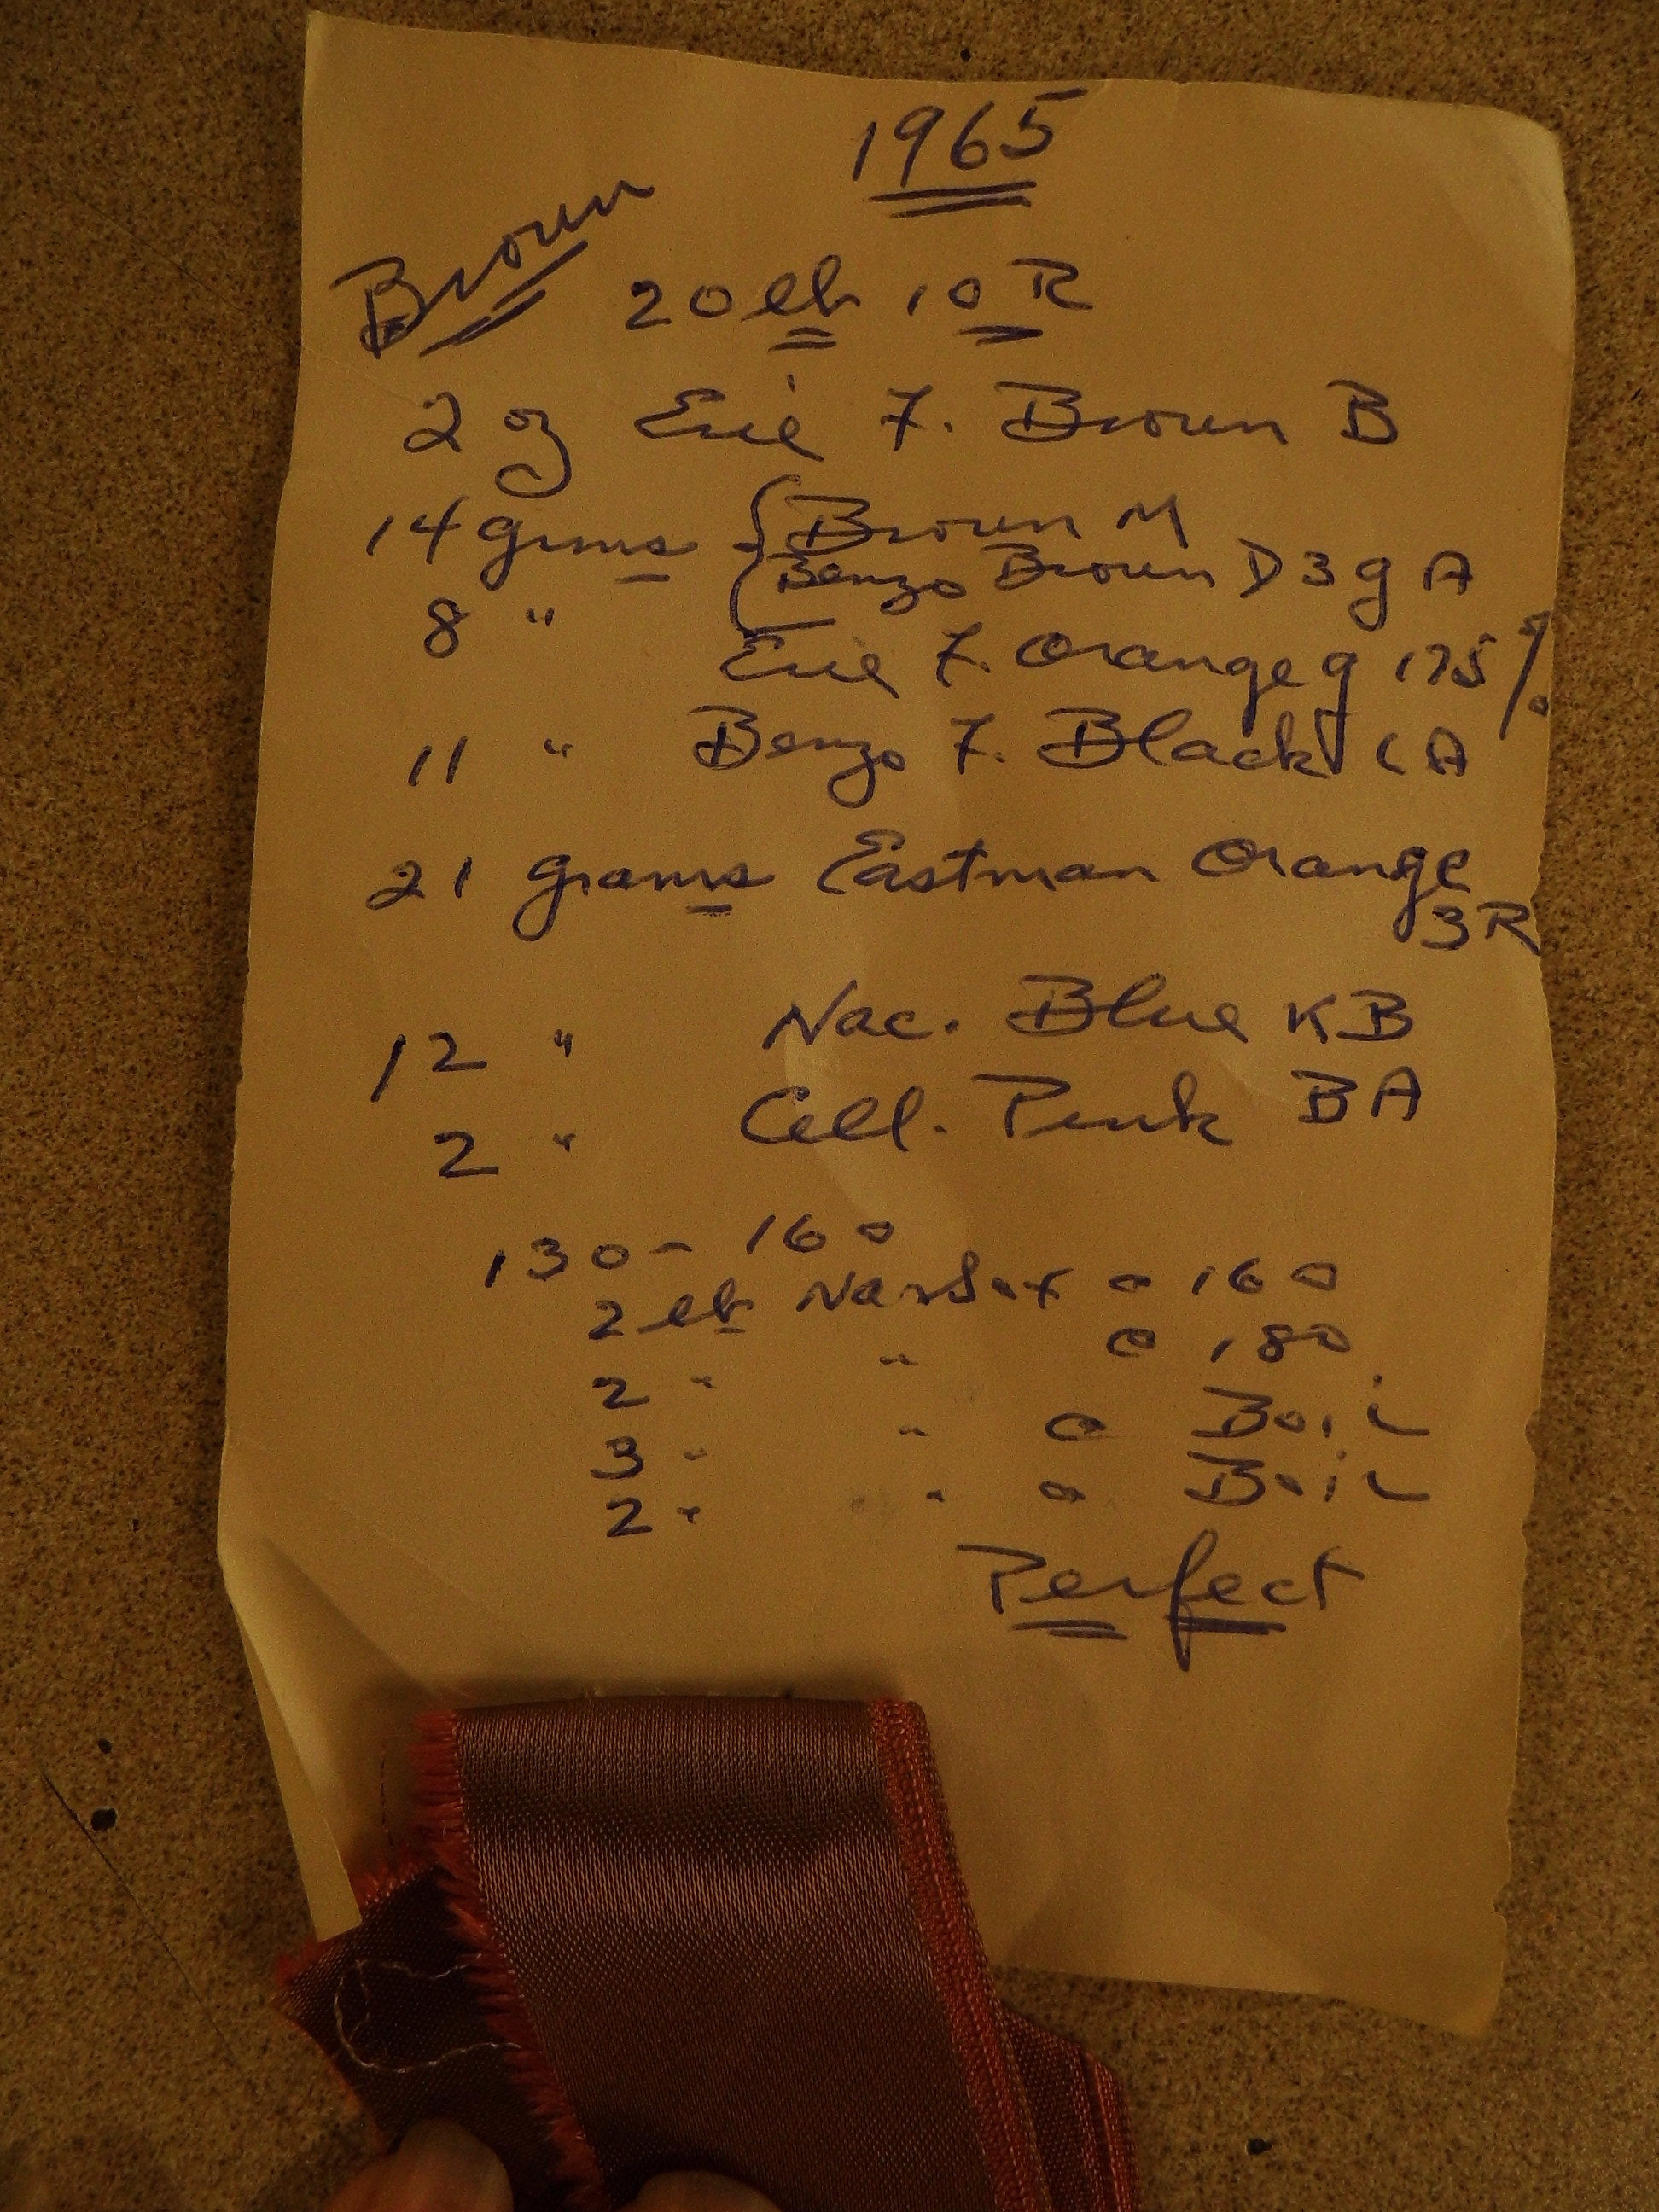 1965
Brown
20 lb 10 R
2 oz Erie F. Brown B
14 grms { Brown M
Benzo Brown D 3 g A
8 " Erie F. Orange g 175%
11 " Benzo F. Black A
21 grams Eastman Orange
3R
12 " Nac. Blue K B
2 " Cell. Pink B A
130 - 160
2 lb @ 160
2 " " @ 180
3 " " @ Boil
2 " " @ Boil
Perfect